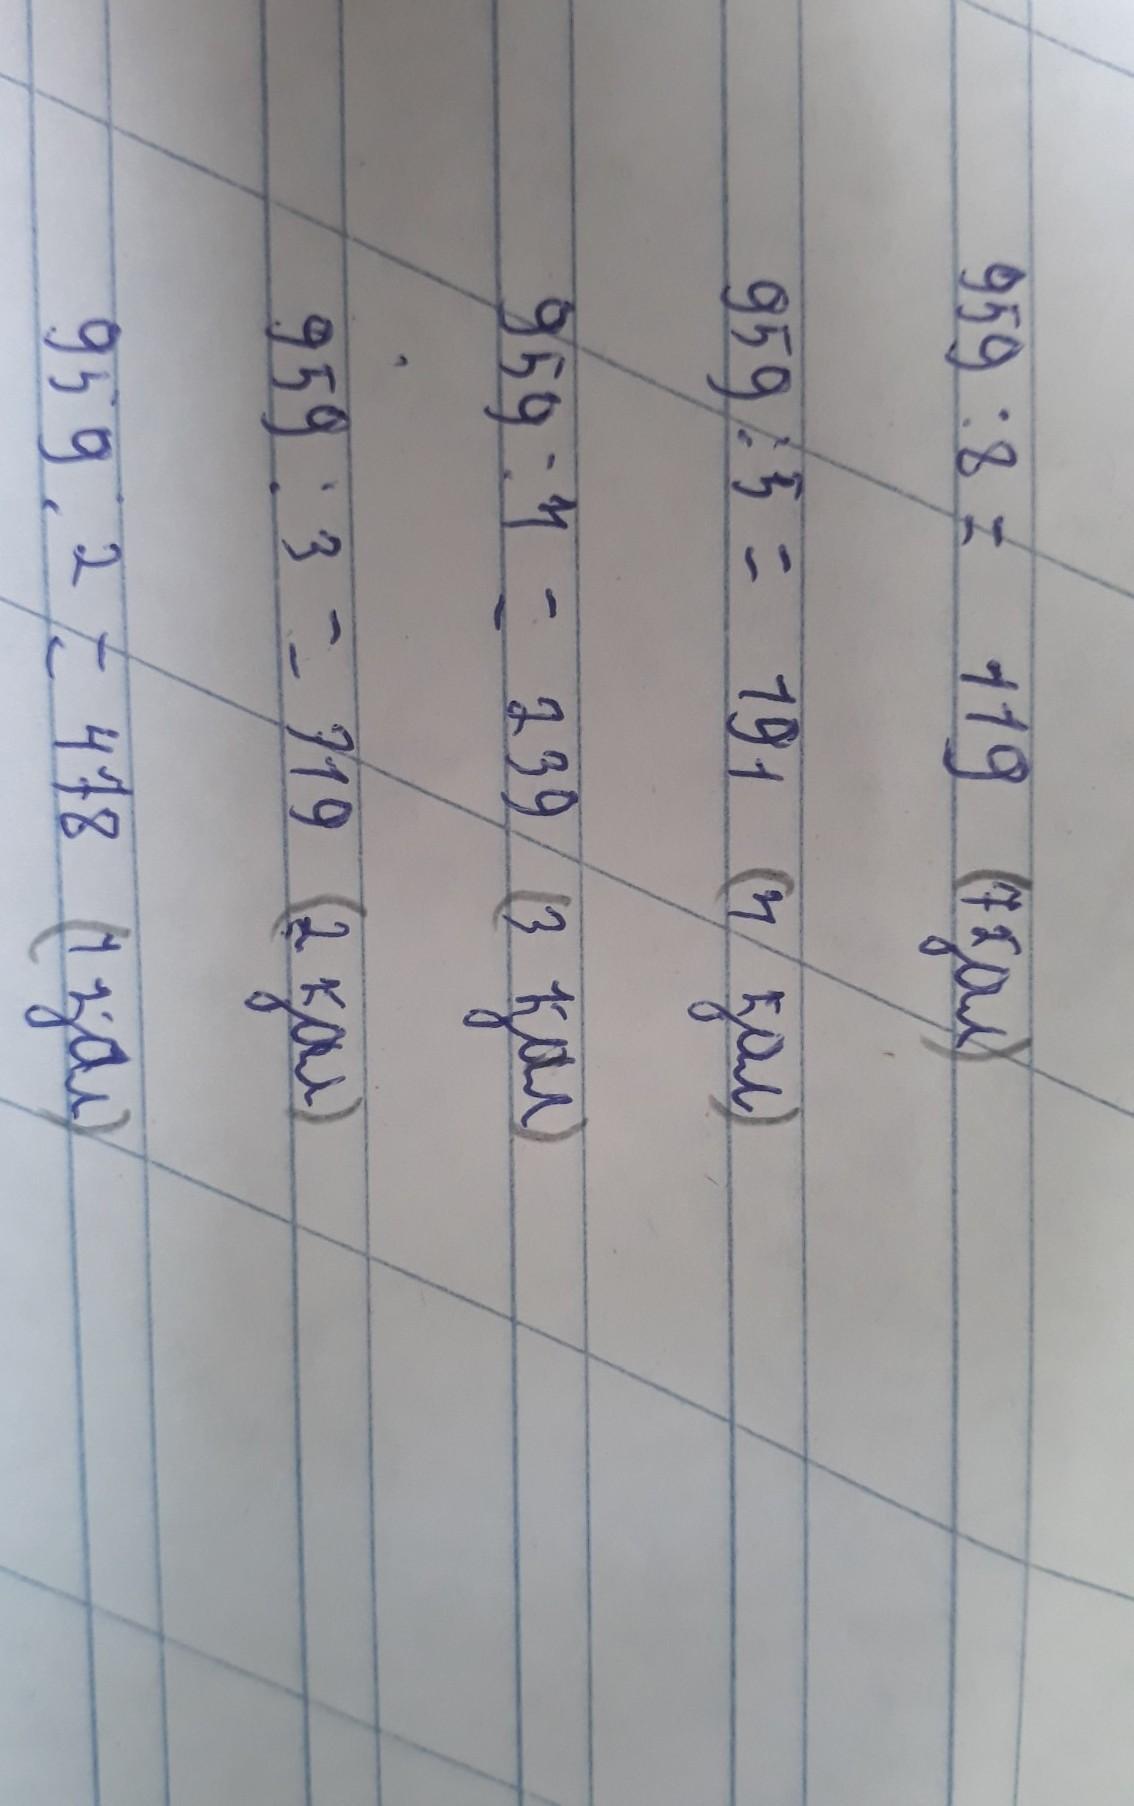 959 : 8 = 119 (7 қал)
959 : 5 = 191 (4 қал)
959 : 4 = 239 (3 қал)
959 : 3 = 319 (2 қал)
959 : 2 = 478 (1 қал)